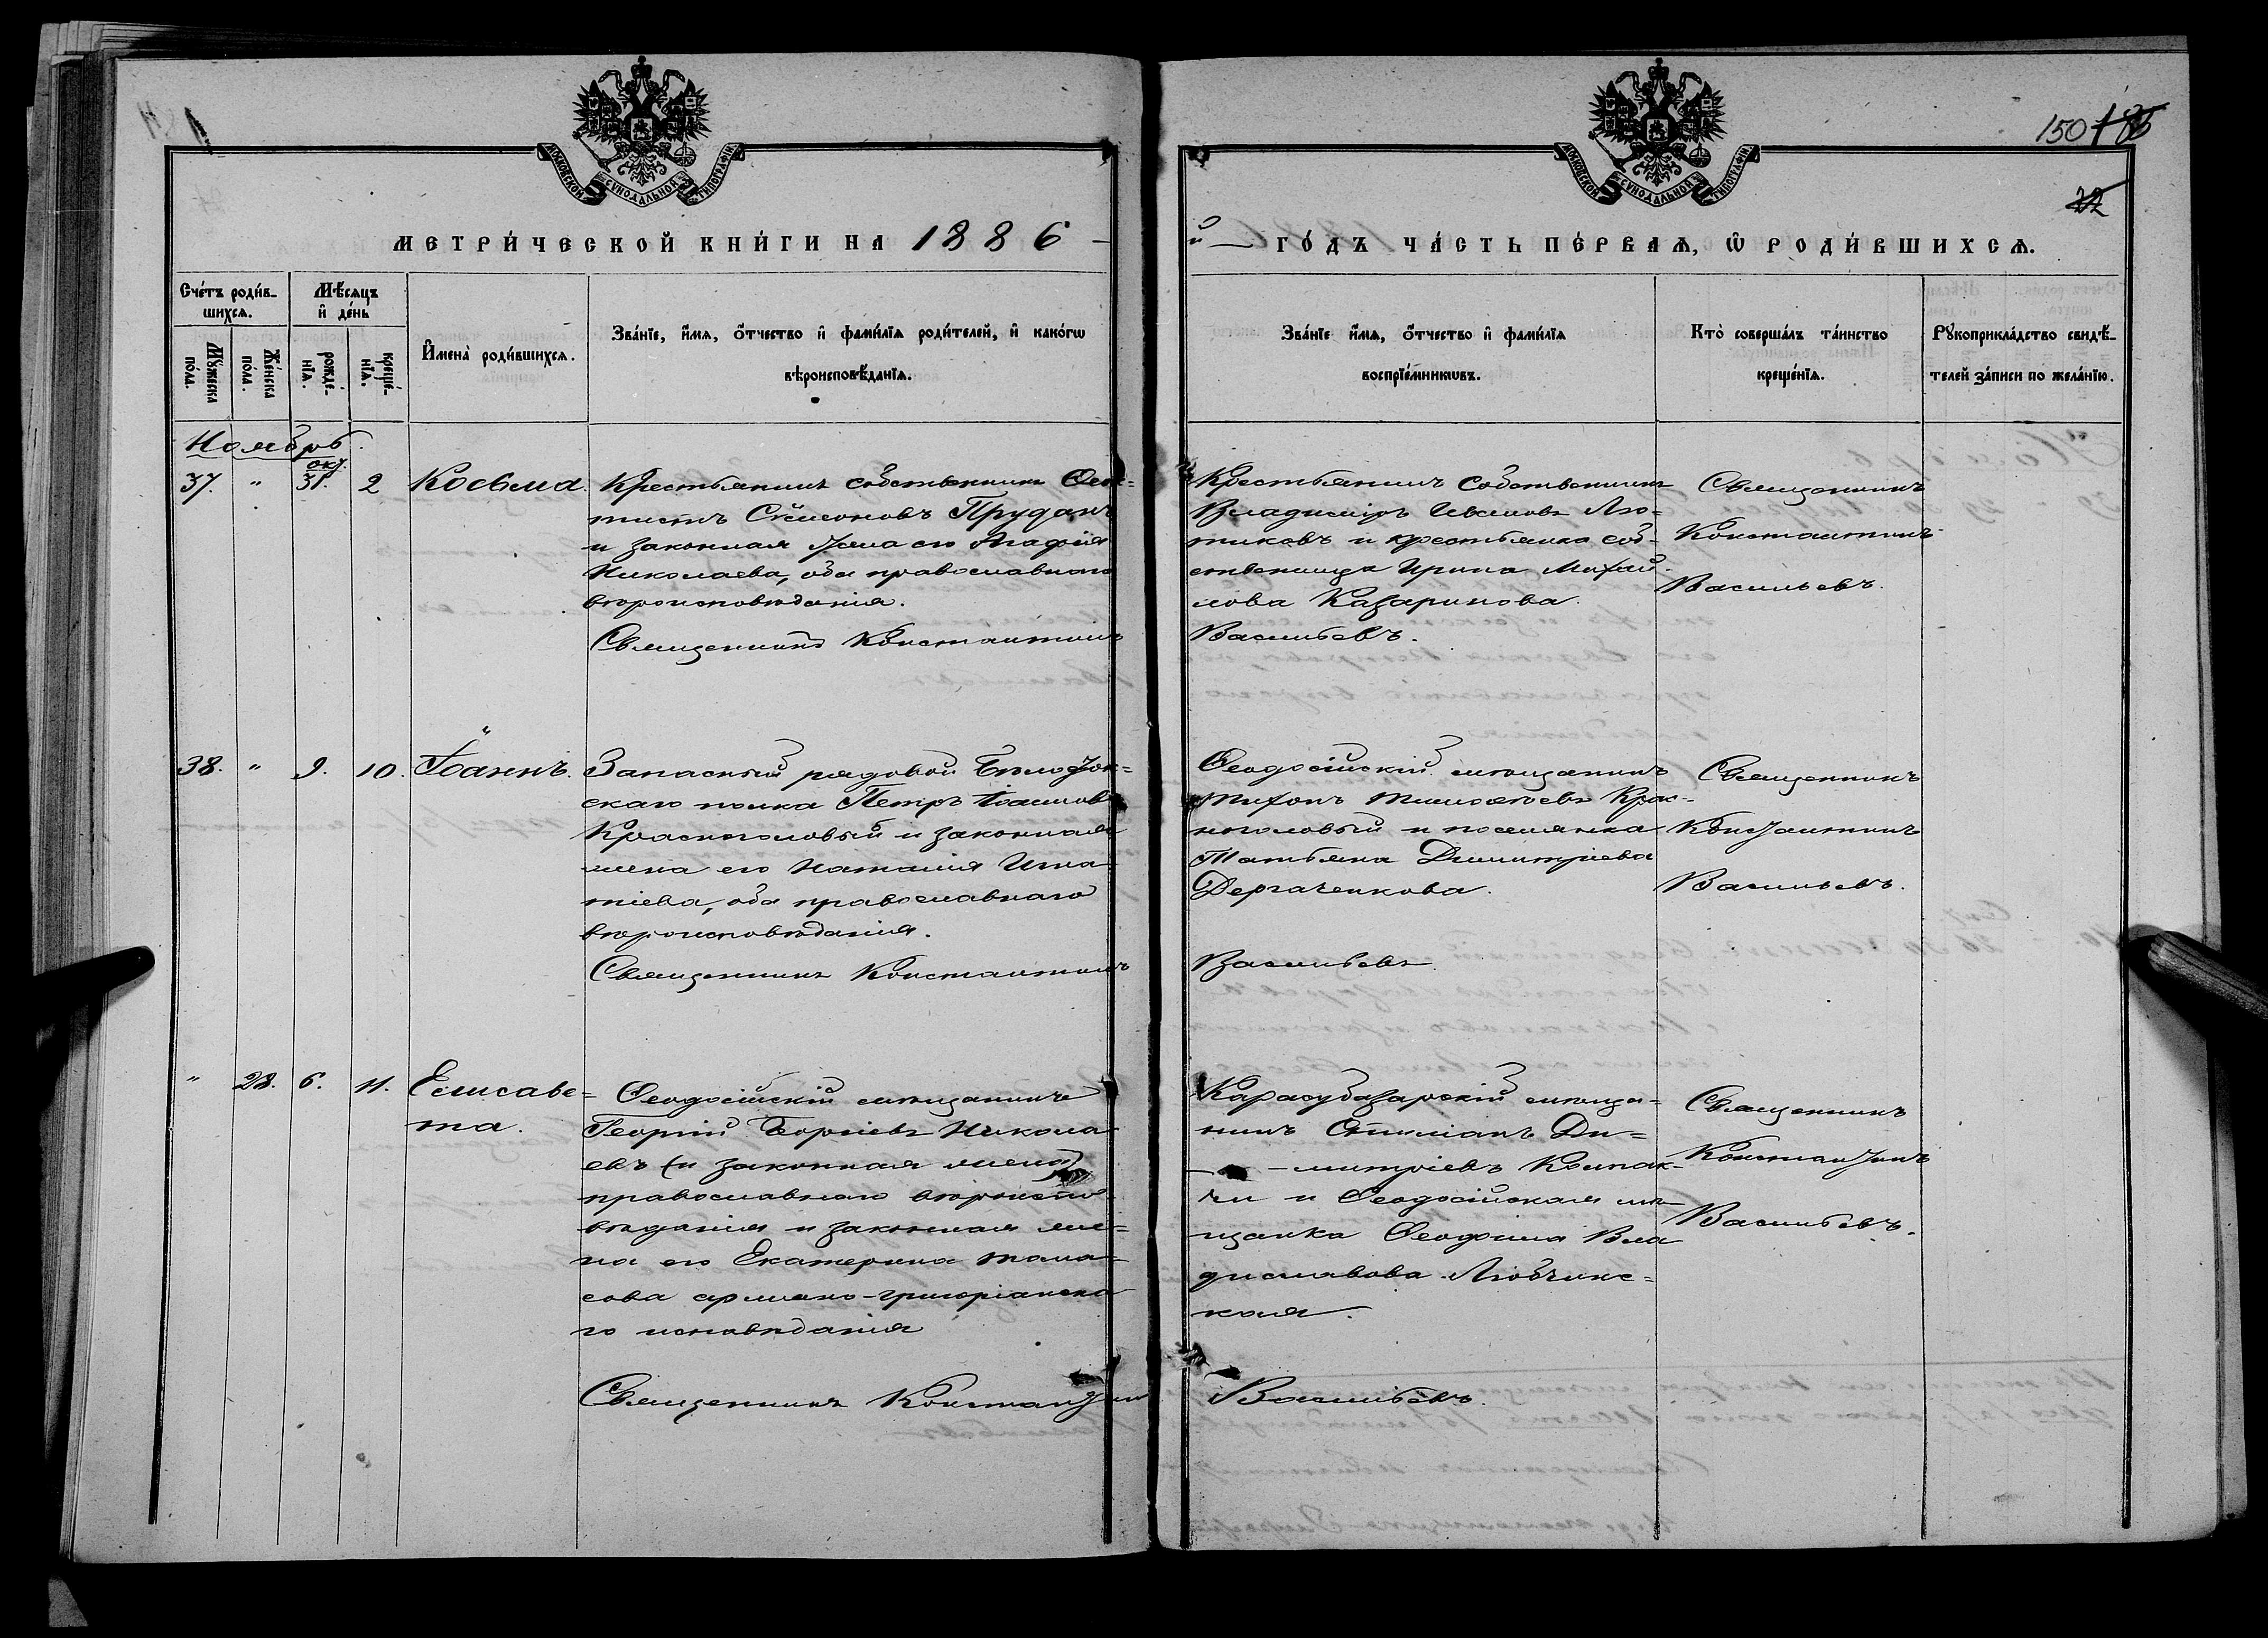 МОСКОВСКОЙ СѴНОДАЛЬНОЙ ТИПОГРАФІИ
МОСКОВСКОЙ СѴНОДАЛЬНОЙ ТИПОГРАФІИ
150
МЕТРИ́ЧЕСКОЙ КНИ́ГИ НА 1886 –
й — ГО́ДЪ ЧА́СТЬ ПЕ́РВАѦ, Ѡ҆ РОДИ́ВШИХСѦ.
Сче́тъ роди́в-
шихсѧ.
Мѣ́сѧцъ
и҆ де́нь
Мꙋ́жеска
по́ла.
Же́нска
по́ла.
рожде́-
нїѧ.
креще́-
нїѧ.
И҆мена̀ роди́вшихсѧ.
Зва́нїе, и҆́мѧ, ѻ҆́тчество и҆ фами́лїѧ роди́телей, и҆ како́гѡ
вѣроисповѣ́данїѧ.
Зва́нїе и҆́мѧ, ѻ҆́тчество и҆ фами́лїѧ
воспрїе́мникѡвъ.
Кто̀ соверша́лъ та́инство
креще́нїѧ.
Рꙋкоприкла́дство свидѣ́-
телей за́писи по жела́нїю.
Ноябрь.
37. " окт. 31. 2 Косьма.
Крестьянинъ собственникъ Ѳеок-
тистъ Сѵмеоновъ Пруданъ
и законная жена его Агафія
Николаева, оба православнаго
вѣроисповѣданія.
Священникъ Константинъ
Крестьянинъ собственникъ
Владиміръ Ивановъ Лю-
тиковъ и крестьянка соб-
ственница Ирина Михай-
лова Казаринова.
Васильевъ.
Священникъ
Константинъ
Васильевъ.
38. " 9. 10. Іоаннъ.
Запасный рядовой
скаго полка Петръ Іоанновъ
Красноголовый и законная
жена его Наталія Игна-
тіева, оба православнаго
вѣроисповѣданія.
Священникъ Константинъ
Ѳеодосійскій мѣщанинъ
Тихонъ Тимоѳеевъ Крас-
ноголовый и поселянка
Татьяна Димитріева
Дергаченкова.
Васильевъ.
Священникъ
Константинъ
Васильевъ.
" 28. 6. 11. Елисаве-
та.
Ѳеодосійскій мѣщанинъ
Георгій Георгіевъ Никола-
евъ (и законная жена)
православнаго вѣроиспо-
вѣданія и законная же-
на его Екатерина
сова армяно-григоріанска-
го исповѣданія
Священникъ Константинъ
Карасубазарскій мѣща-
нинъ Стиліанъ Ди-
митріевъ Колпак-
чи и Ѳеодосійская мѣ-
щанка Ѳеофила Вла-
диславова Любчинс-
кая.
Васильевъ.
Священникъ
Константинъ
Васильевъ.